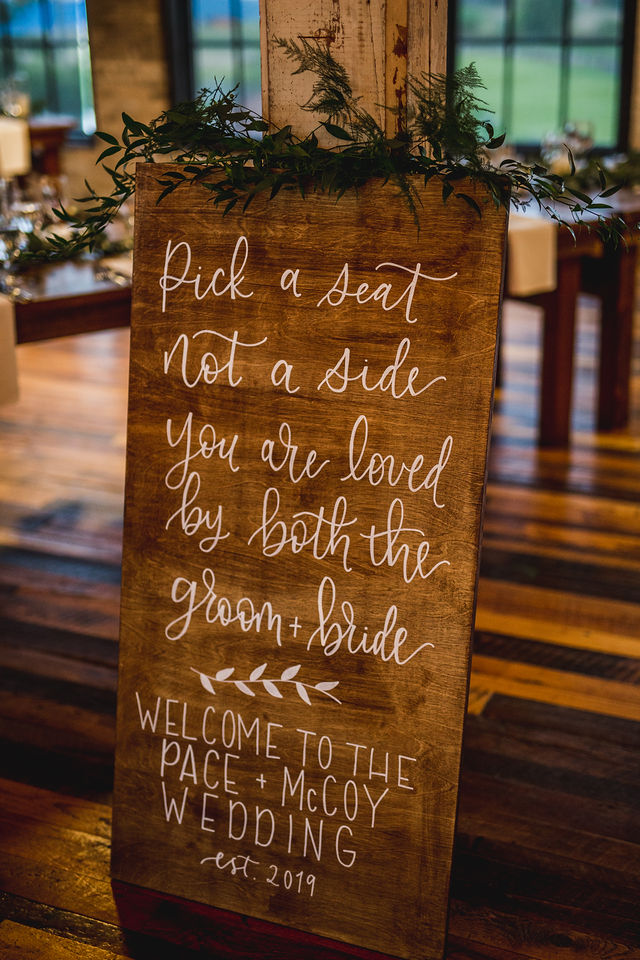 Pick a seat
not a side
you are loved
by both the
groom + bride
WELCOME TO THE
PACE + McCOY
WEDDING
est. 2019